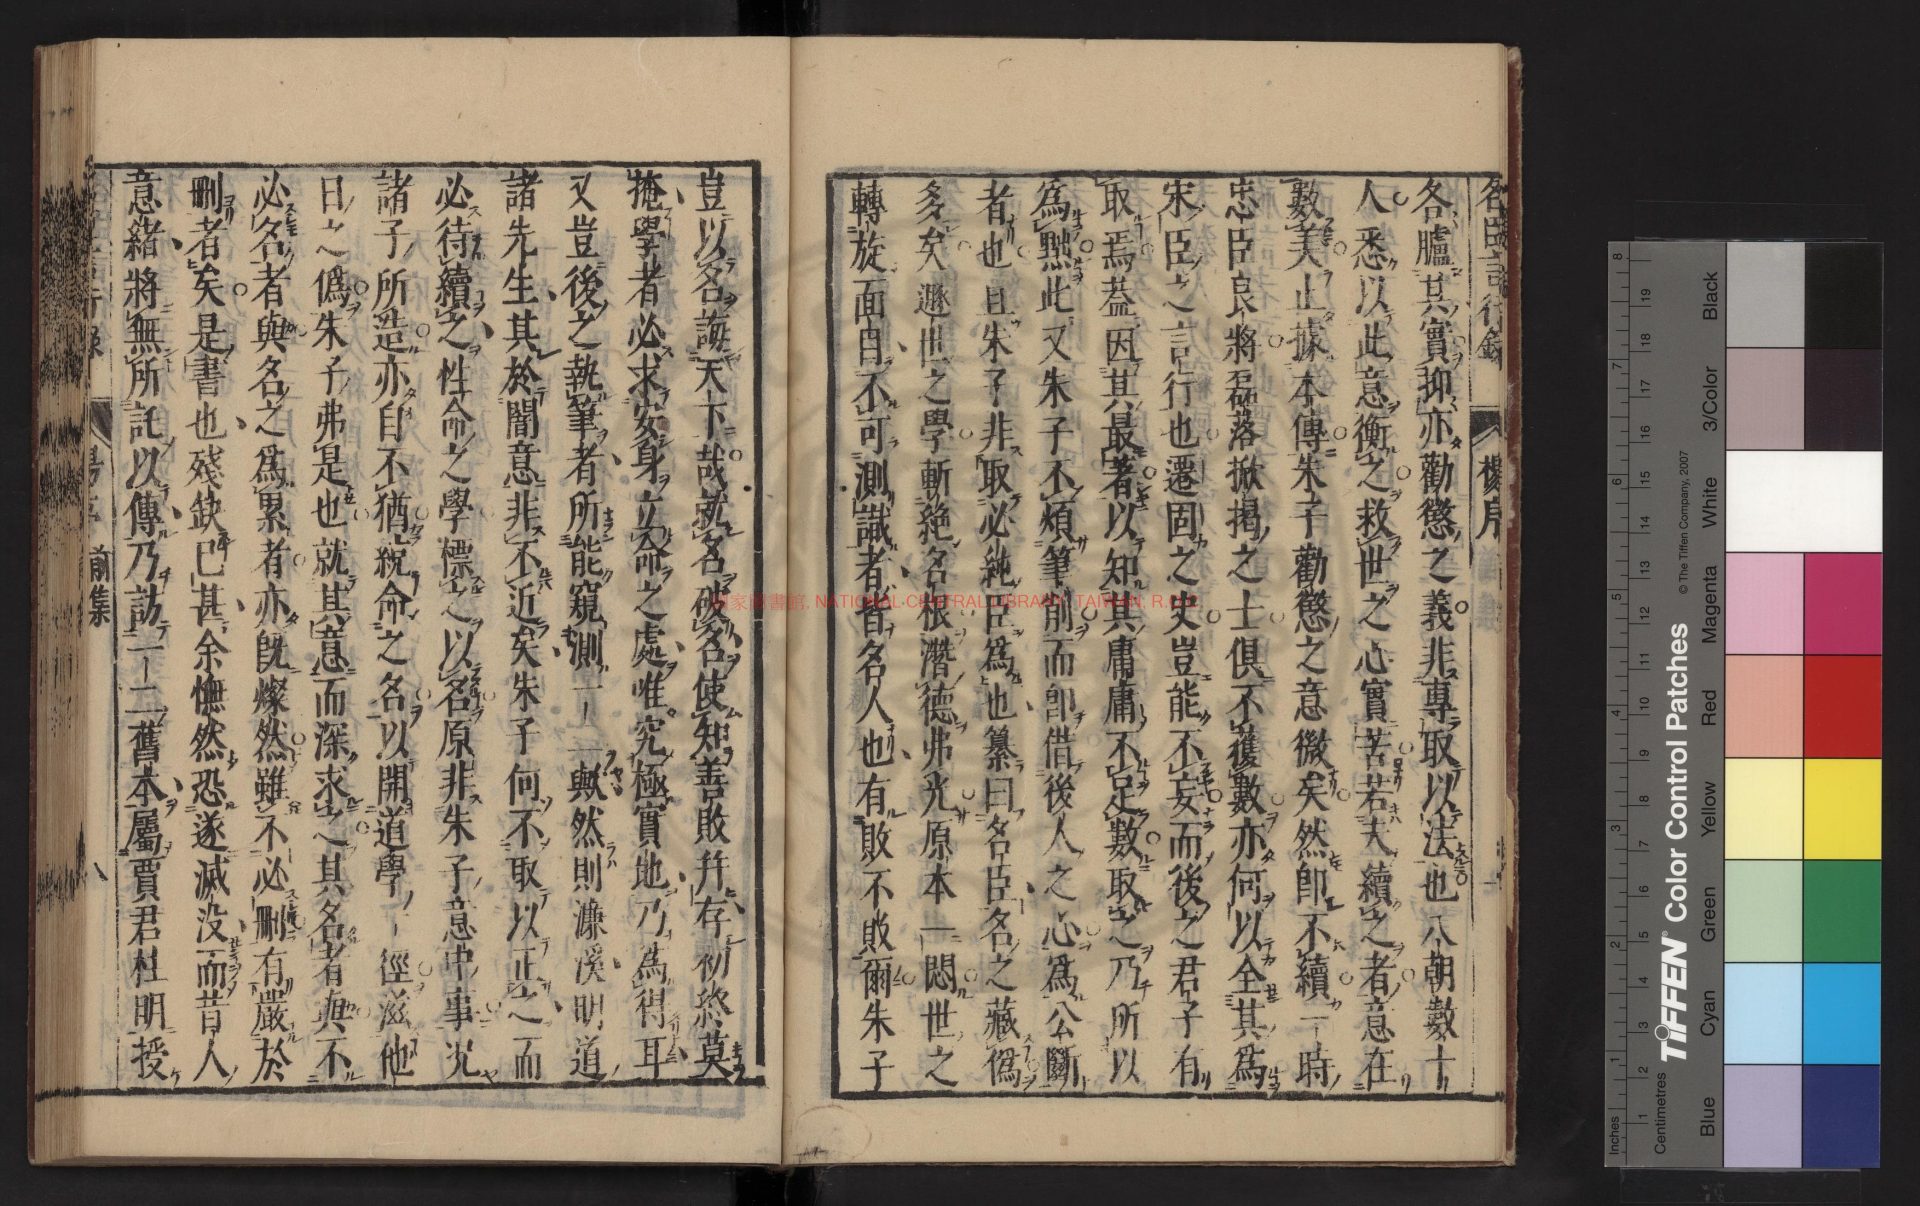 名臣言行錄 楊序
各臚其實抑亦勸懲之義非專取以法也八朝數十
人悉以此意衡之救世之心實苦若夫續之者意在
數美止據本傳朱子勸懲之意微矣然卽不續一時
忠臣良將磊落掀揭之士俱不獲數亦何以全其爲
宋臣之言行也遷固之史豈能不妄而後之君子有
取焉葢因其最著以知其庸庸不足數取之乃所以
爲黜此又朱子不煩筆削而卽借後人之心爲公斷
者也且朱子非取必純臣爲也纂曰名臣名之藏僞
多矣遯世之學斬絶名根潛德弗光原本一悶世之
轉旋面目不可測識者皆名人也有敗不敗爾朱子
豈以名誨天下哉就名破名使知善敗幷存初終莫
掩學者必求安身立命之處唯究極實地乃爲得耳
又豈後之執筆者所能窺測一二歟然則濂溪明道
諸先生其於闇意非不近矣朱子何不取以正之而
必待續之性命之學標之以名原非朱子意中事况
諸子所造亦自不猶綂命之名以開道學一徑滋他
日之僞朱子弗是也就其意而深求之其名者與不
必名者與名之爲累者亦旣燦然雖不必刪有嚴於
刪者矣是書也殘缺已甚余憮然恐遂滅没而昔人
意緒將無所託以傳乃訪一二舊本屬賈君杜明授
前集
八
國家圖書館, NATIONAL CENTRAL LIBRARY, TAIWAN, R.O.C.
Inches
Centimetres
1 2 3 4 5 6 7 8
1 2 3 4 5 6 7 8 9 10 11 12 13 14 15 16 17 18 19
TIFFEN® Color Control Patches
© The Tiffen Company, 2007
Blue
Cyan
Green
Yellow
Red
Magenta
White
3/Color
Black